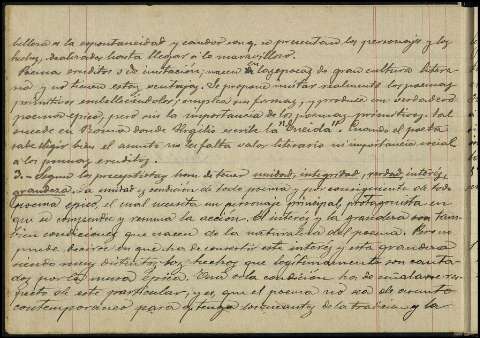 belleza a la espontaneidad y candor con q. se presentan los personajes y los
hechos, valorados hasta llegar a lo maravilloso.
Poema eruditos o de imitación; nacen en las epocas de gran cultura litera-
ria y no tienen estas ventajas. Se propone imitar realmente los poemas
primitivos embelleciendolos; emplea sus formas, y produce un verdadero
poema epico, pero sin la importancia de los poemas primitivos. Tal
sucede en Roma donde Virgilio escribe la "Eneida". Cuando el poeta
sabe elegir bien el asunto no les falta valor literario ni importancia social
a los poemas eruditos.
3.- segun los preceptistas han de tener unidad, integridad, verdad, interés,
grandeza. La unidad es condición de todo poema y por consiguiente de todo
poema epico, el cual necesita un personaje principal, protagonista en
que se comprende y resuma la acción. El interés y la grandeza son tam-
bien condiciones que nacen de la naturaleza del poema. Pero no
puede decirse en qué ha de consistir este interés y esta grandeza
siendo muy distintos los hechos que legitimamente son canta-
dos por la musa épica. Una sola condición ha de señalarse res-
pecto de este particular, y es, que el poema no sea de asunto
contemporaneo para q. tenga los encantos de la tradición y la